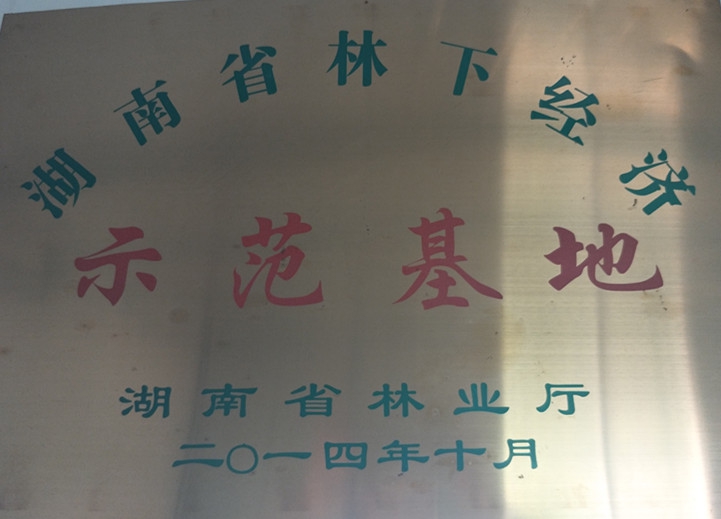 湖南省林下经济
示范基地
湖南省林业厅
二〇一四年十月